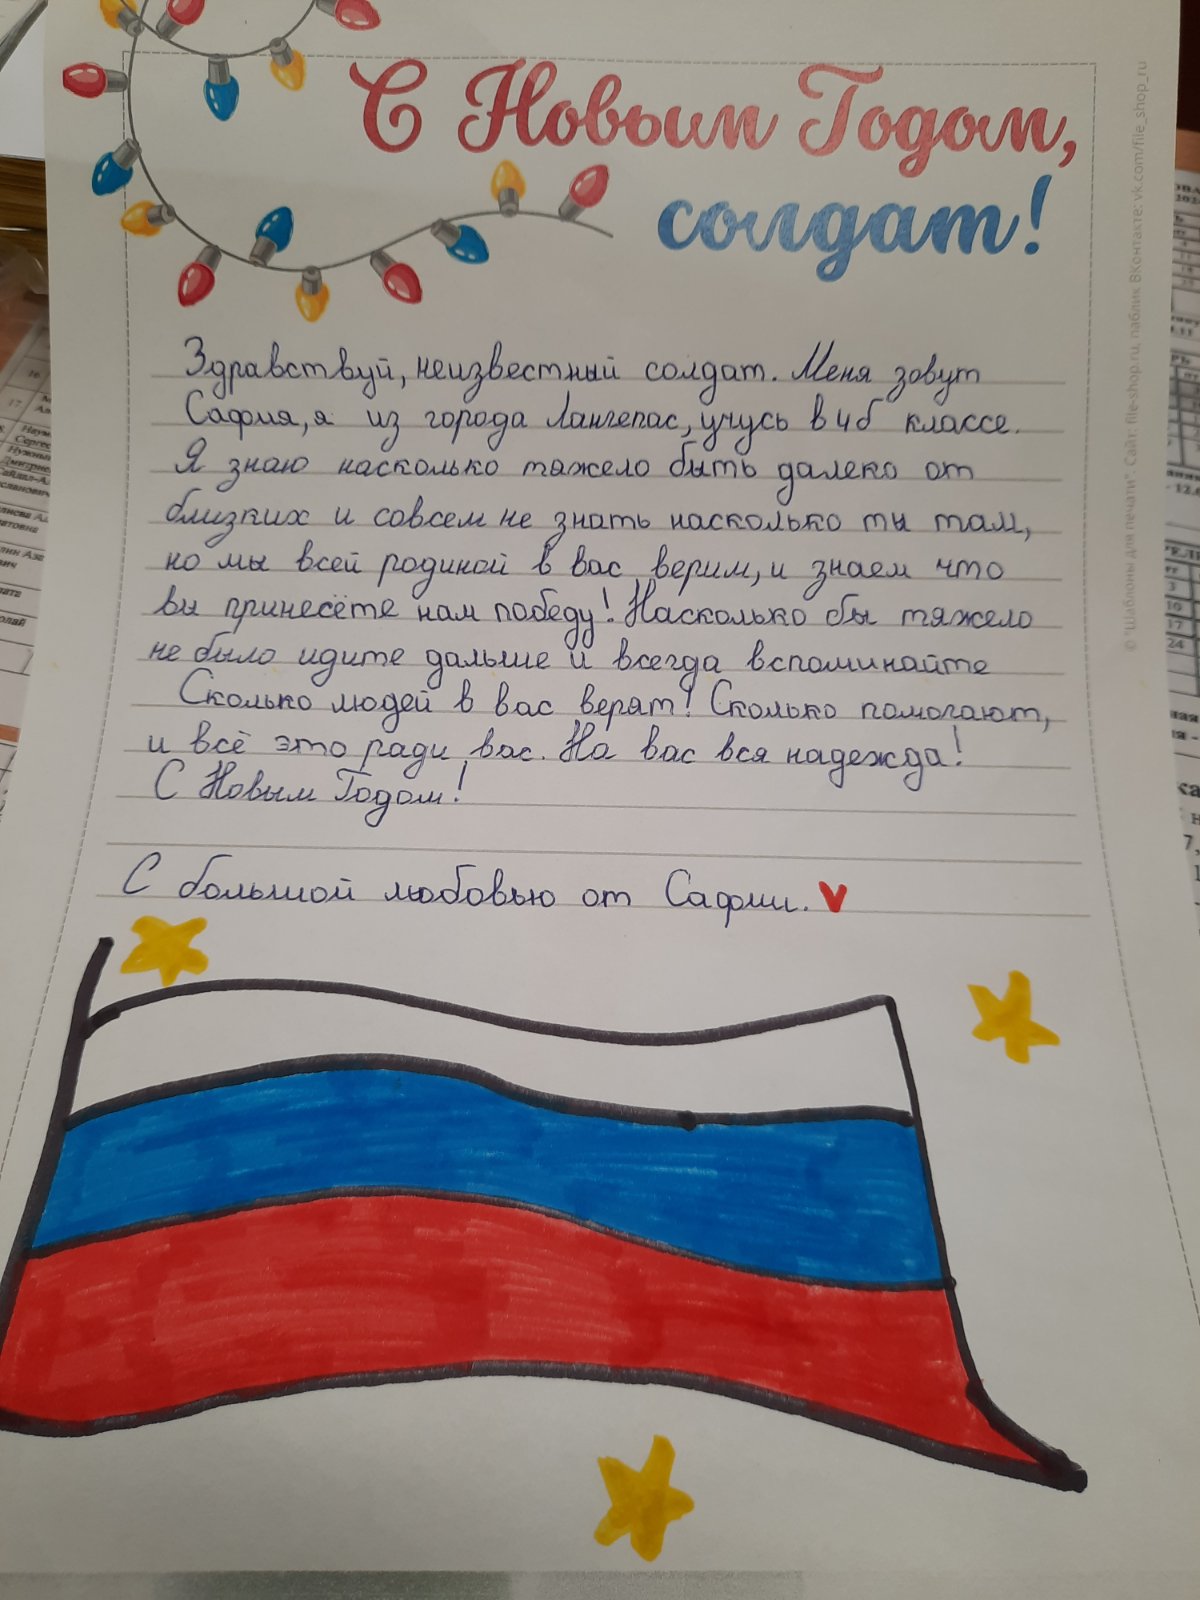 С Новым Годом,
солдат!
Здравствуй, неизвестный солдат. Меня зовут
Сафия, я из города Лангепас, учусь в 4б классе.
Я знаю насколько тяжело быть далеко от
близких и совсем не знать насколько ты там,
но мы всей родиной в вас верим, и знаем что
вы принесёте нам победу! Насколько бы тяжело
не было идите дальше и всегда вспоминайте
Сколько людей в вас верят! Сколько помогают,
и всё это ради вас. На вас вся надежда!
С Новым Годом!
С большой любовью от Сафии.
© "Шаблоны для печати". Сайт: file-shop.ru, паблик ВКонтакте: vk.com/file_shop_ru